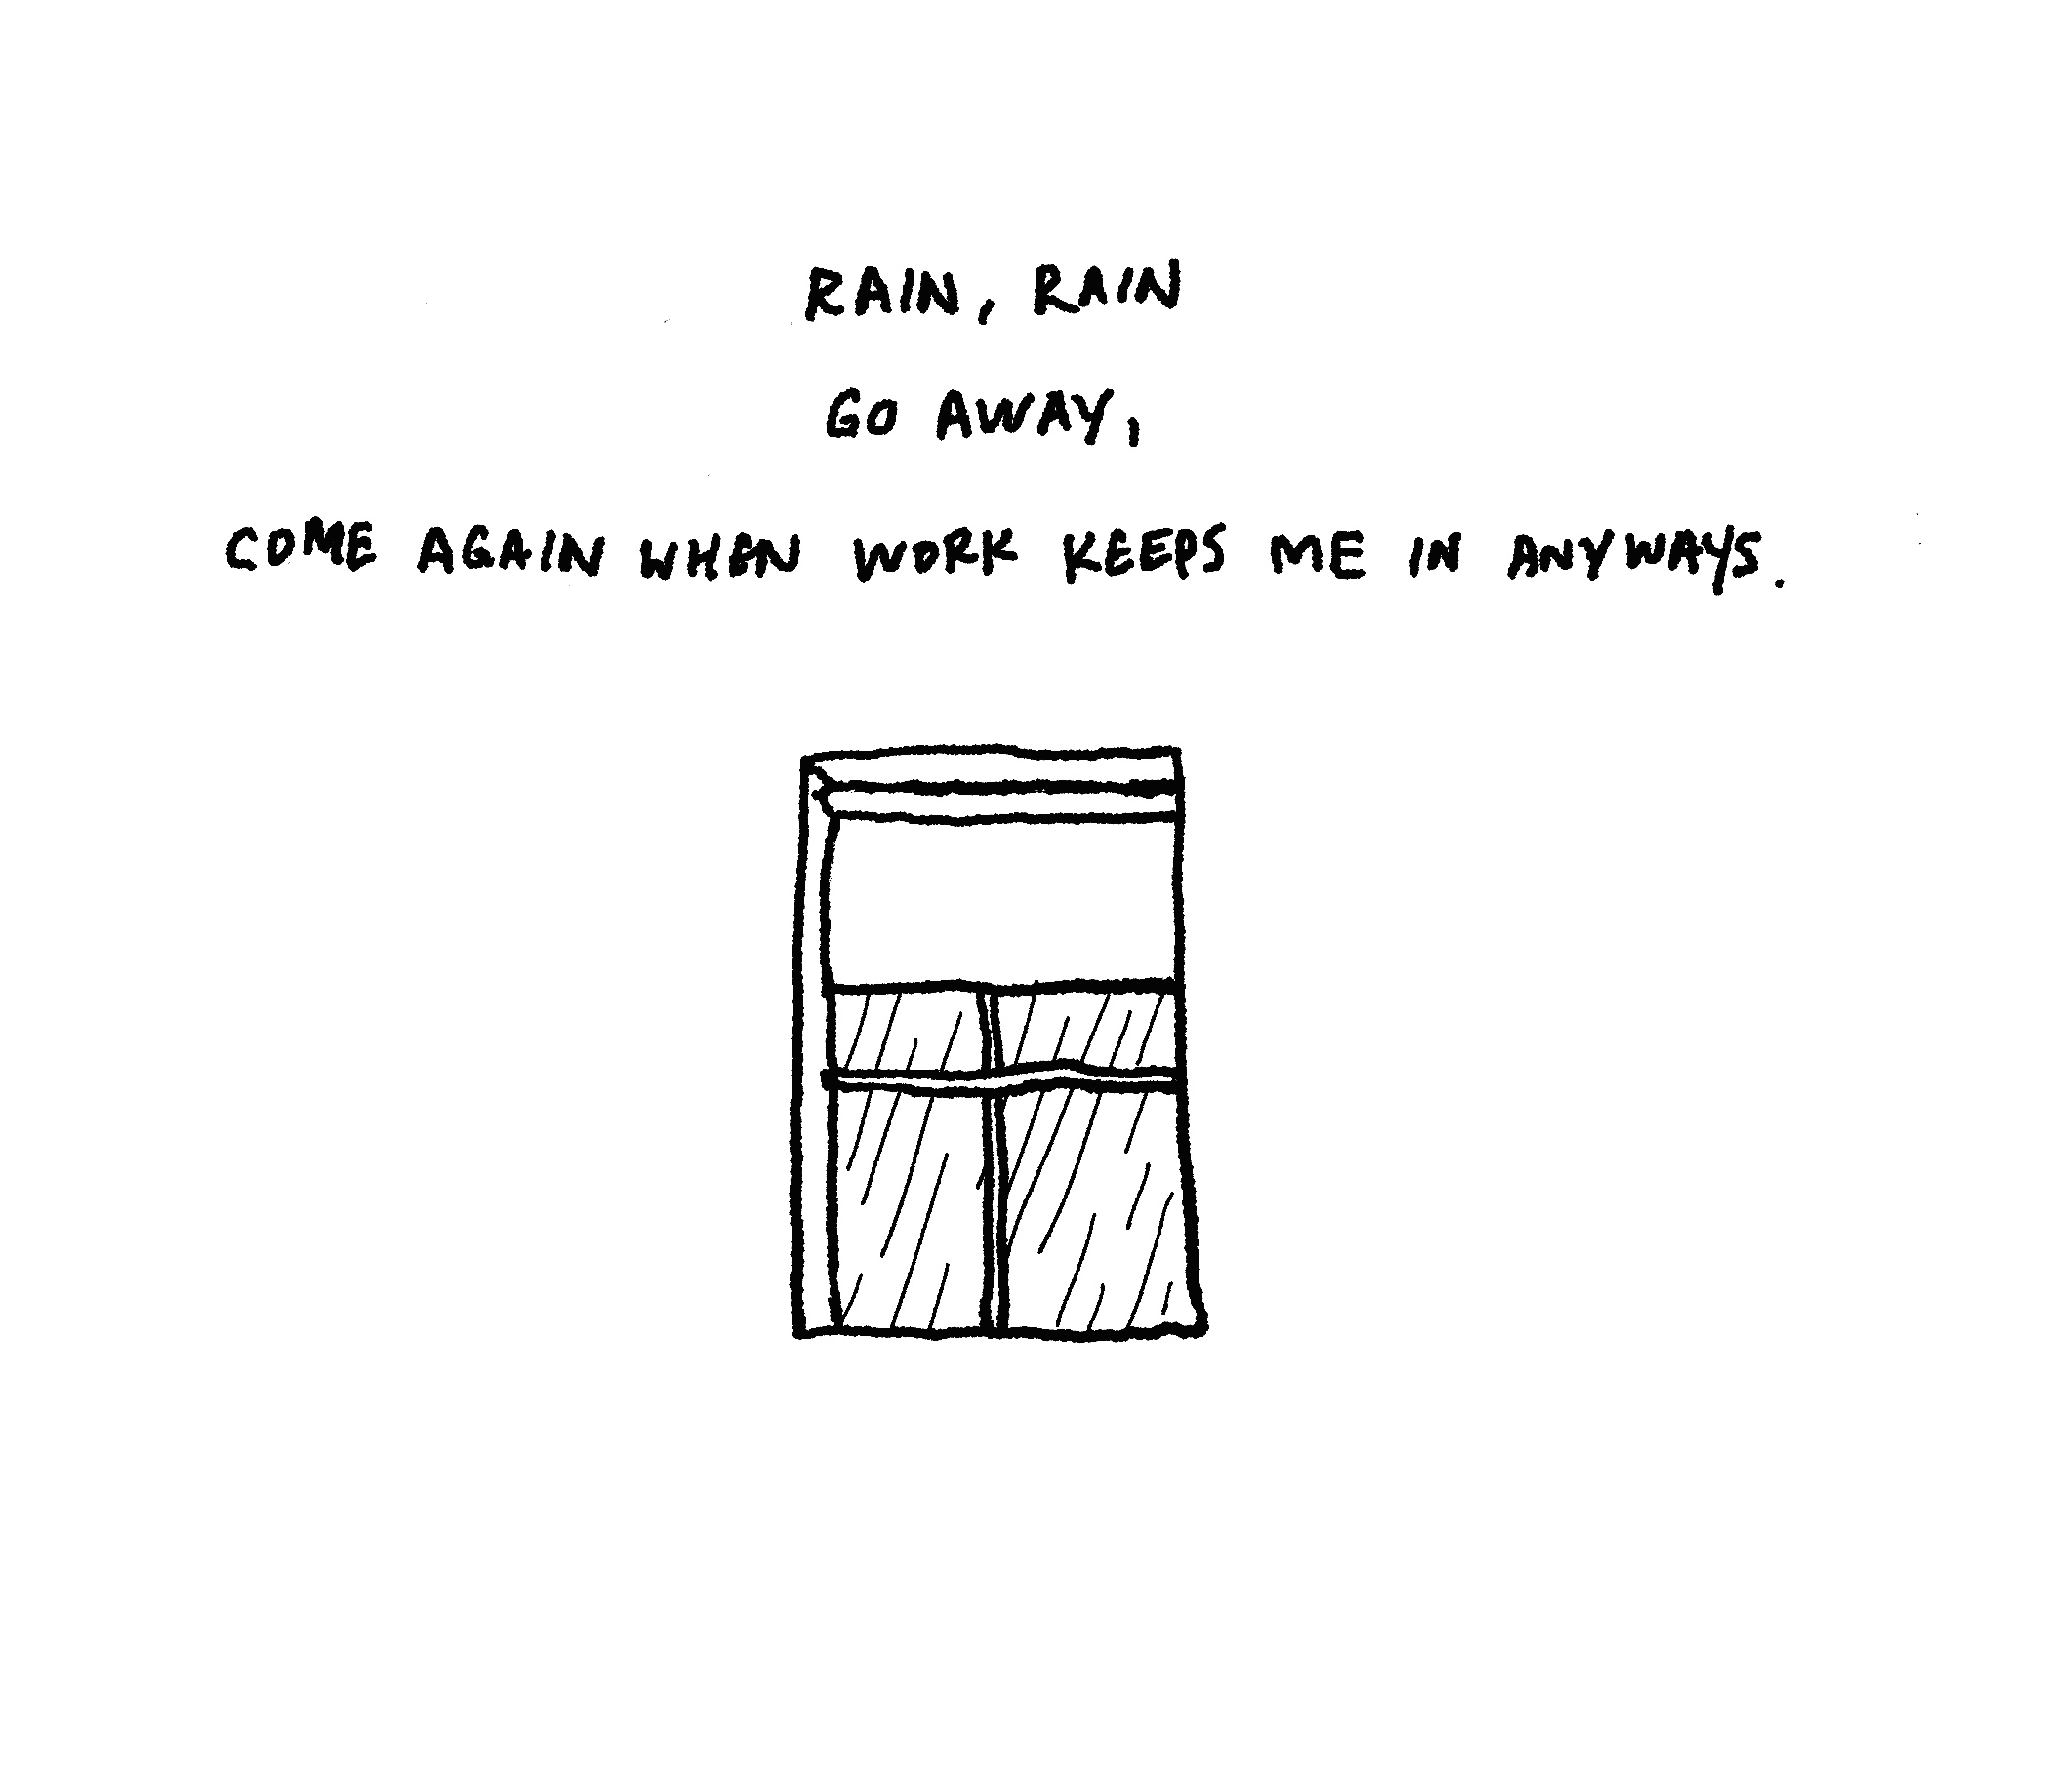 RAIN, RAIN
GO AWAY,
COME AGAIN WHEN WORK KEEPS ME IN ANYWAYS.